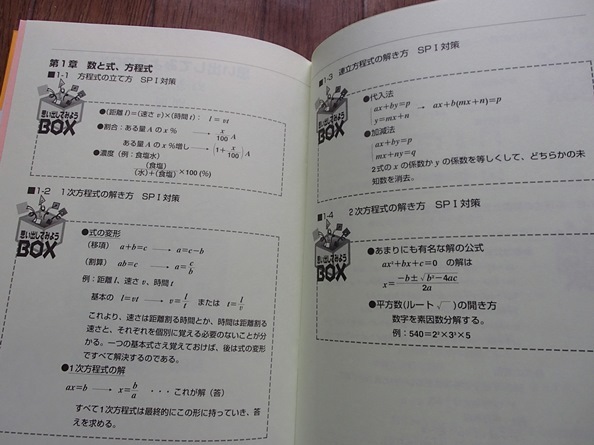 第1章 数と式、方程式
■1-1 方程式の立て方 SPⅠ対策
思い出してみよう
BOX
●(距離 l)=(速さ v)×(時間 t): l=vt
●割合:ある量 A の x % → x/100 A
ある量 A の x %増し → (1+x/100)A
●濃度(例:食塩水)
(食塩)/(水)+(食塩)×100(%)
■1-2 1次方程式の解き方 SPⅠ対策
思い出してみよう
BOX
●式の変形
(移項) a+b=c → a=c-b
(割算) ab=c → a=c/b
例:距離 l、速さ v、時間 t
基本の l=vt → v=l/t または t=l/v
これより、速さは距離割る時間とか、時間は距離割る
速さと、それぞれを個別に覚える必要のないことが分
かる。一つの基本式さえ覚えておけば、後は式の変形
ですべて解決するのである。
●1次方程式の解
ax=b → x=b/a ・・・これが解(答)
すべて1次方程式は最終的にこの形に持っていき、答
えを求める。
■1-3 連立方程式の解き方 SPⅠ対策
思い出してみよう
BOX
●代入法
{ax+by=p
y=mx+n → ax+b(mx+n)=p
●加減法
{ax+by=p
mx+ny=q
2式の x の係数か y の係数を等しくして、どちらかの未
知数を消去。
■1-4 2次方程式の解き方 SPⅠ対策
思い出してみよう
BOX
●あまりにも有名な解の公式
ax²+bx+c=0 の解は
x=(-b±√(b²-4ac))/2a
●平方数(ルート√ )の開き方
数字を素因数分解する。
例:540=2²×3³×5